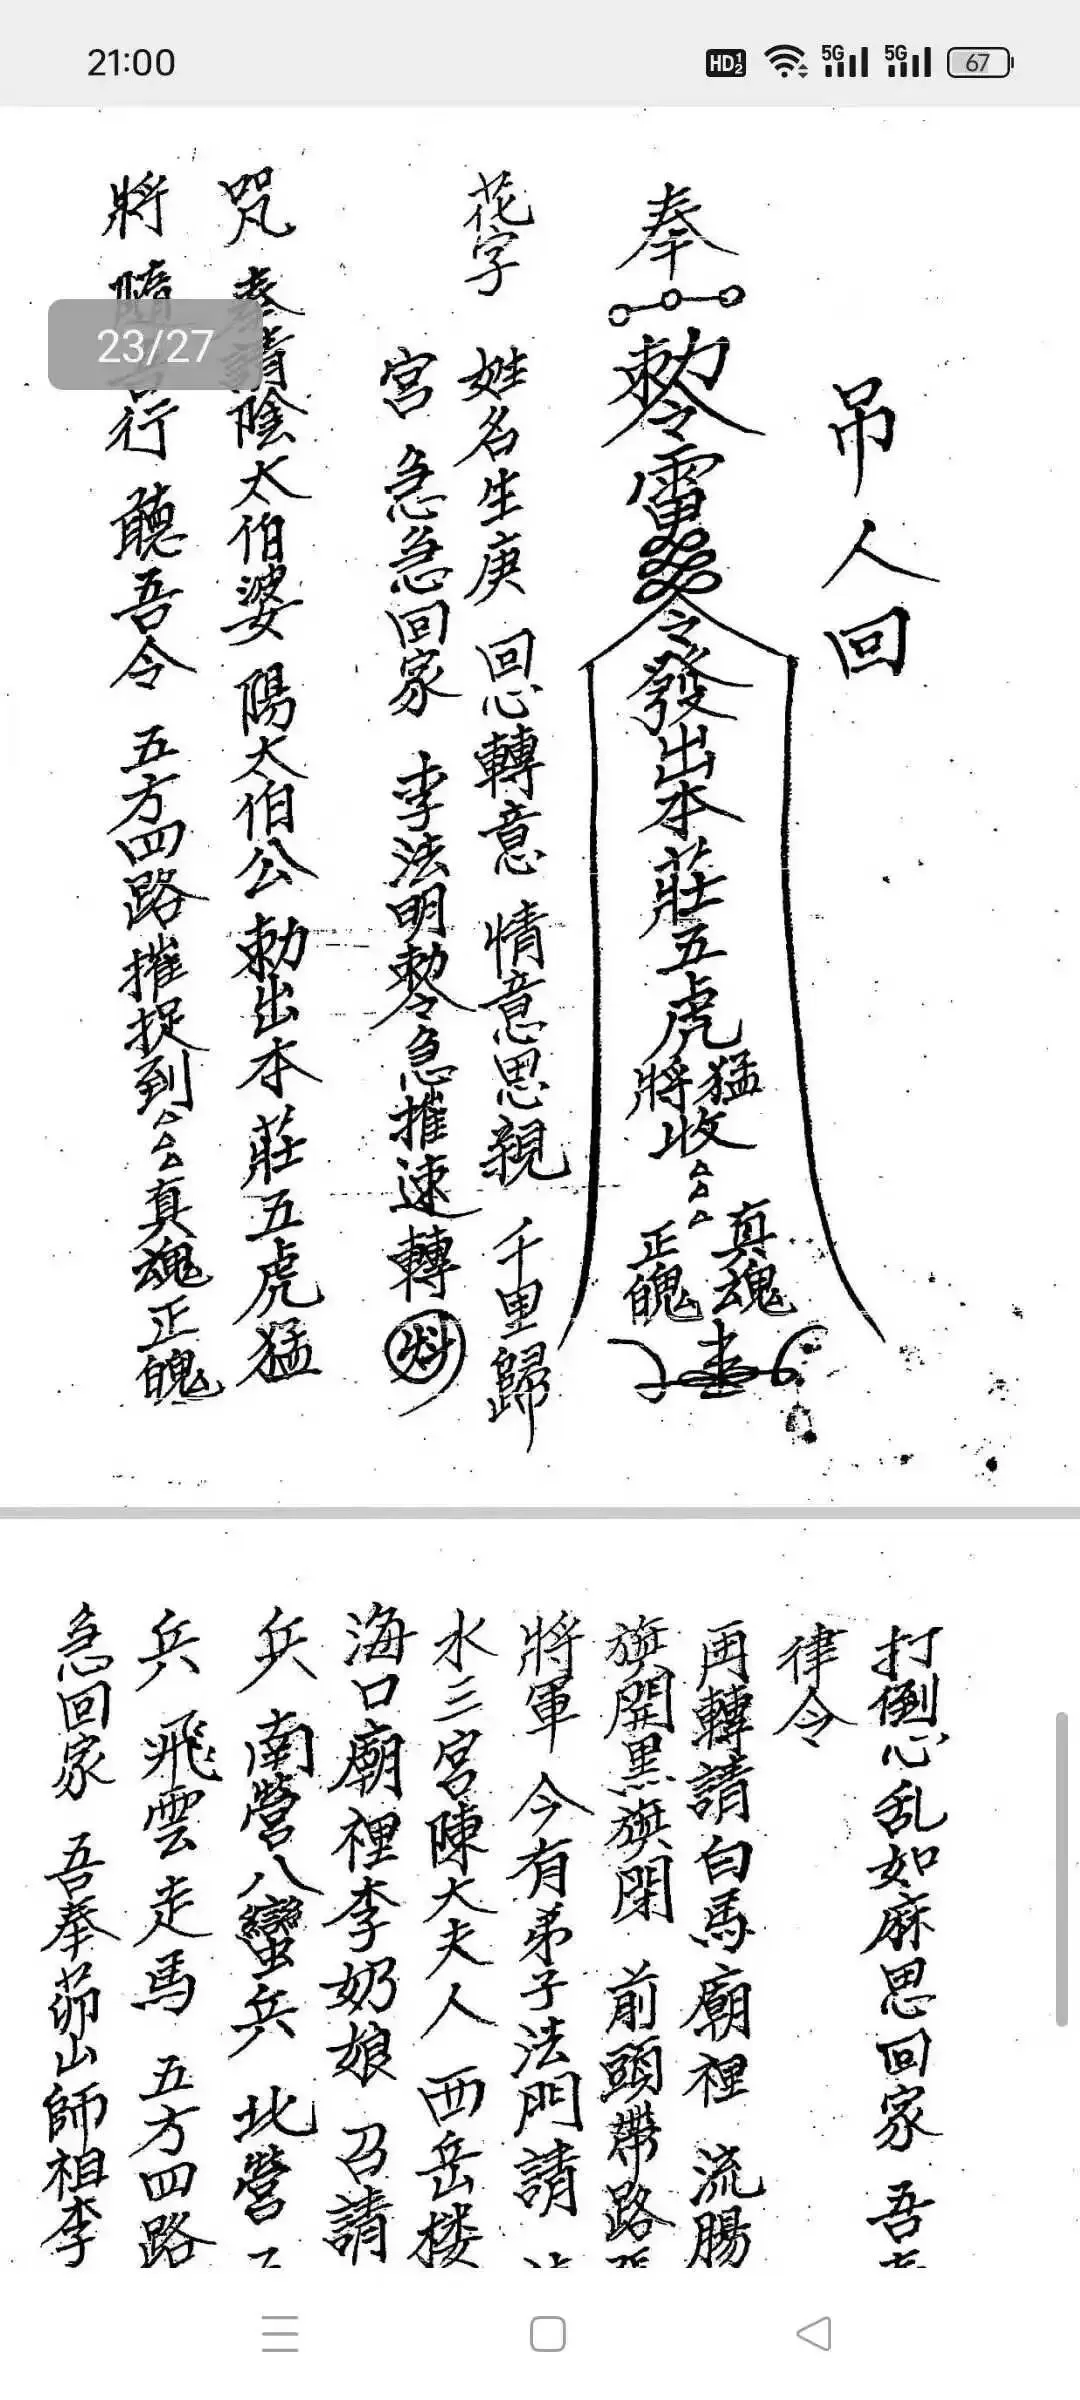 21:00
HD 5G 5G 67
23/27
吊人回
奉
勅令雷
令發出本莊五虎
猛
將收
真魂
正魄
花字 姓名生庚 回心轉意 情意思親 千里歸
宮 急急回家 李法明勅令急摧速轉
咒 奉請陰太伯婆 陽太伯公 勅出本莊五虎猛
將 隨吾行 聽吾令 五方四路摧捉到 真魂正魄
打倒心乱如麻思回家 吾奉
律令
再轉請白馬廟裡 流腸
旗開黑旗閉 前頭帶路
將軍 今有弟子法門請
水三宮陳大夫人 西岳楼
海口廟裡李奶娘 召請
兵 南營八蠻兵 北營
兵 飛雲走馬 五方四路
急回家 吾奉茆山師祖李